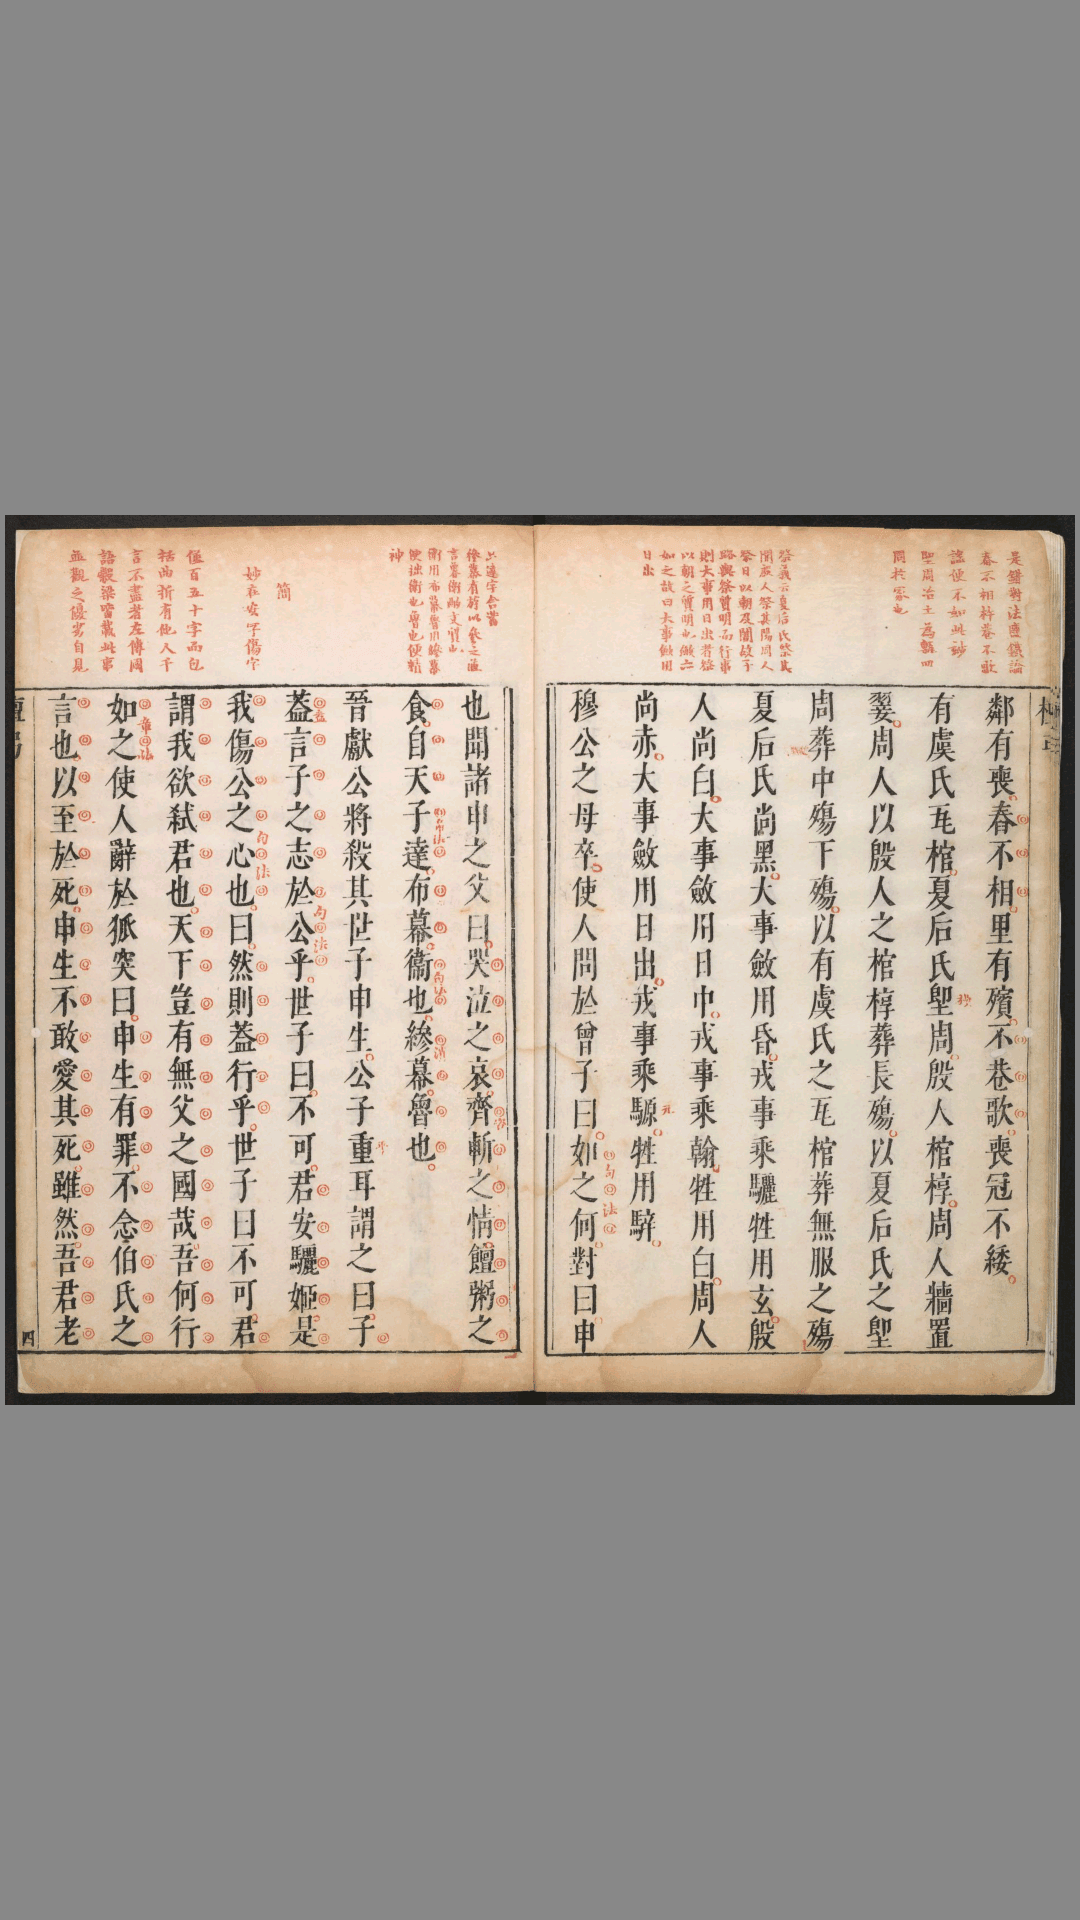 是鍊對法鹽鐵論
春不相杵巷不歌
謠便不如此妙
堲周冶土爲甎四
周於家也
祭義云夏后氏祭其
闇殷人祭其陽周人
祭日以朝及闇故子
路與祭質明而行事
則大事用日出者祭
以朝之質明也儀六
如之故曰大事斂用
日出
鄰有喪春不相里有殯不巷歌喪冠不緌
有虞氏瓦棺夏后氏堲周殷人棺椁周人牆置
翣周人以殷人之棺椁葬長殤以夏后氏之堲
周葬中殤下殤以有虞氏之瓦棺葬無服之殤
夏后氏尚黑大事斂用昏戎事乘驪牲用玄殷
人尚白大事斂用日中戎事乘翰牲用白周人
尚赤大事斂用日出戎事乘騵牲用騂
穆公之母卒使人問於曾子曰如之何對曰申
句法
言幕衛酌文質也
衛用布幕魯用縿幕
使拙衛也魯也便精
神
簡
妙在安字傷字
僅百五十字而包
括曲折有他人千
言不盡者左傳國
語穀梁皆載此事
並觀之優劣自見
也聞諸申之父曰哭泣之哀齊斬之情饘粥之
食自天子達布幕衞也縿幕魯也
晉獻公將殺其世子申生公子重耳謂之曰子
蓋言子之志於公乎世子曰不可君安驪姬是
句法
我傷公之心也曰然則蓋行乎世子曰不可君
句法
謂我欲弒君也天下豈有無父之國哉吾何行
如之使人辭於狐突曰申生有罪不念伯氏之
章法
言也以至於死申生不敢愛其死雖然吾君老
四